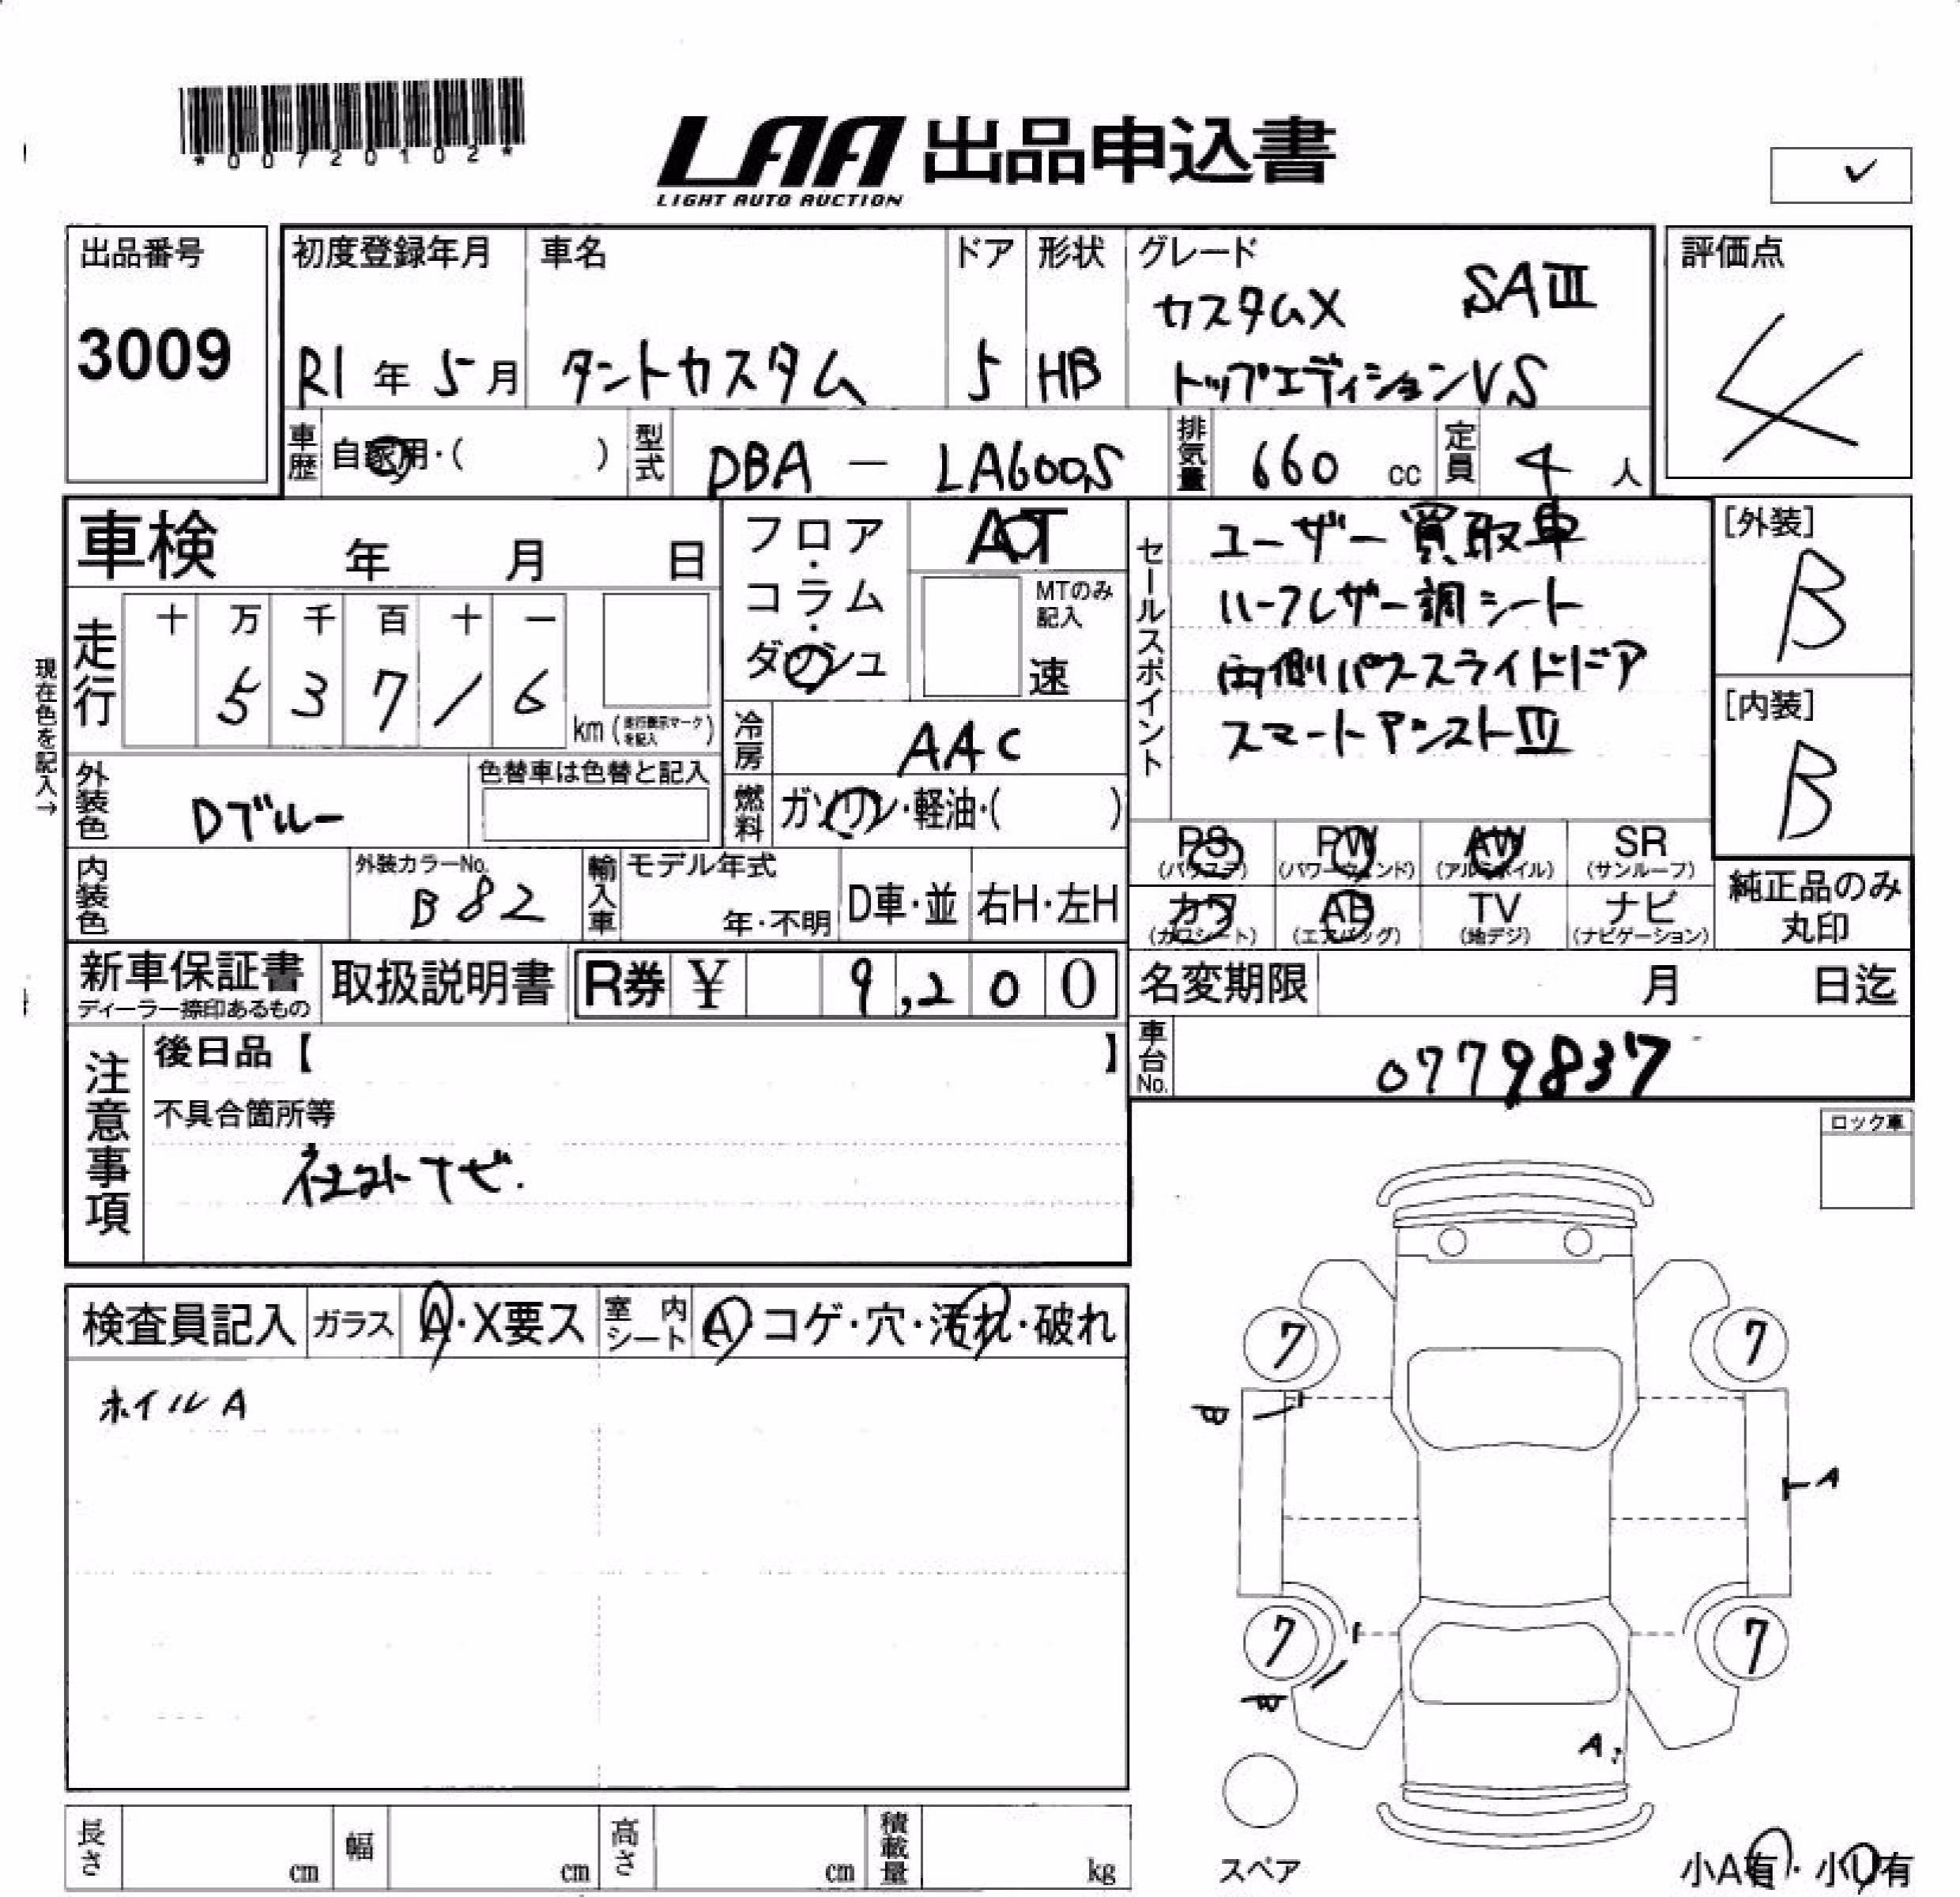 *00720102*
LAA 出品申込書
LIGHT AUTO AUCTION
✓
出品番号 3009
初度登録年月 R1年 5月
車名 タントカスタム
ドア 5
形状 HB
グレード カスタムX SAⅢ
トップエディションVS
評価点 4
車歴 自家用・( )
型式 DBA - LA600S
排気量 660 cc
定員 4 人
車検 年 月 日
フロア・コラム・ダッシュ
AT
MTのみ記入
速
セールスポイント
ユーザー買取車
ハーフレザー調シート
両側パワースライドドア
スマートアシストⅢ
[外装] B
[内装] B
現在色を記入→
走行 十 万 千 百 十 一
5 3 7 1 6
km (走行表示マークを記入)
冷房 AAC
外装色 Dブルー
色替車は色替と記入
燃料 ガソリン・軽油・( )
内装色
外装カラーNo. B82
輸入車 モデル年式
年・不明
D車・並
右H・左H
PS PW AW SR
(パワステ) (パワーウィンド) (アルミホイル) (サンルーフ)
カワ AB TV ナビ
(カワシート) (エアバッグ) (地デジ) (ナビゲーション)
純正品のみ
丸印
新車保証書
ディーラー捺印あるもの
取扱説明書
R券 ¥ 9,200
名変期限 月 日迄
注意事項
後日品【 】
不具合箇所等
社外ナビ.
車台No. 0779837
ロック車
検査員記入
ガラス A・X要ス
室内シート A・コゲ・穴・汚れ・破れ
ホイルA
7
7
A
7
7
A
スペア
小A有・小U有
長さ cm
幅 cm
高さ cm
積載量 kg